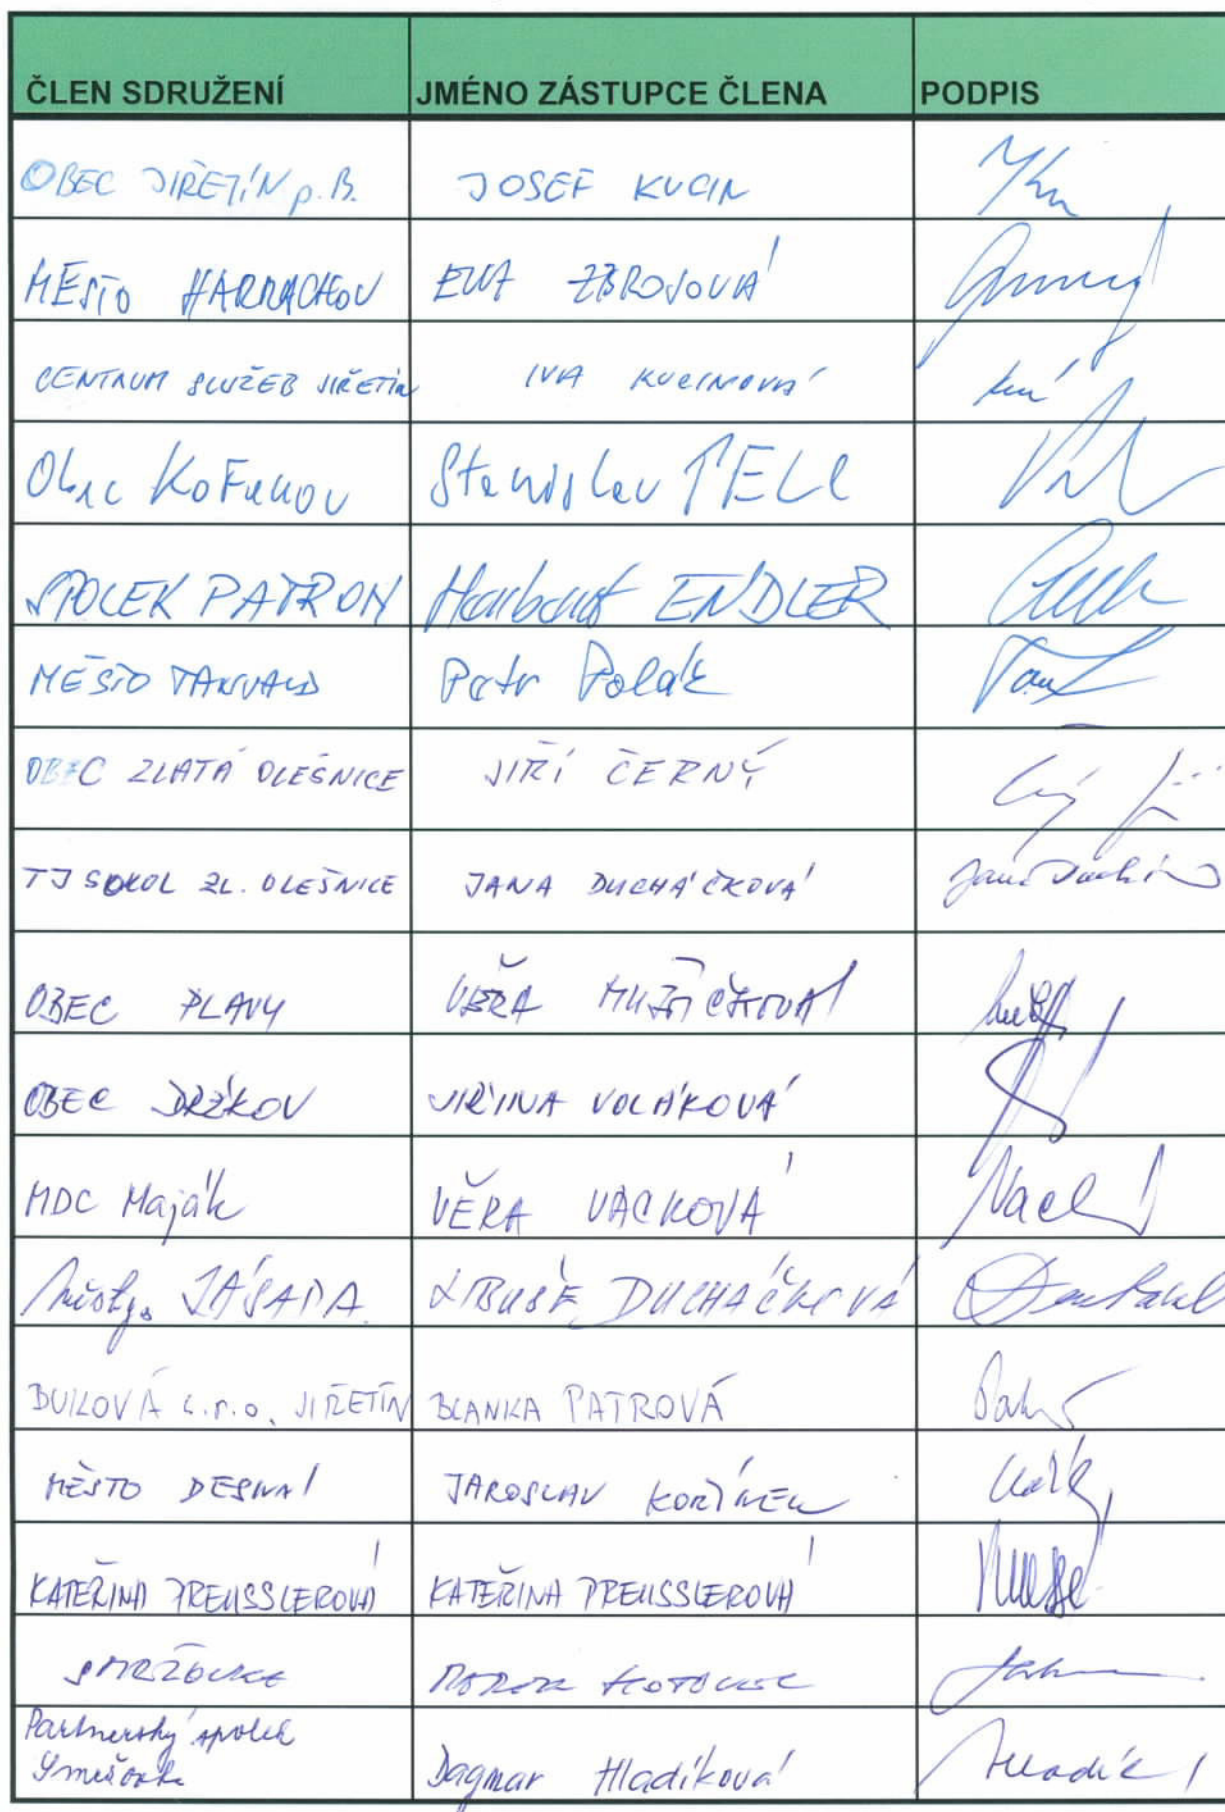 ČLEN SDRUŽENÍ JMÉNO ZÁSTUPCE ČLENA PODPIS
OBEC JIŘETÍN p.B. JOSEF KUCIN
MĚSTO HARRACHOV EVA ZBROJOVÁ
CENTRUM SLUŽEB JIŘETÍN IVA KUCINOVÁ
Obec Kořenov Stanislav PELC
SPOLEK PATRON Herbert ENDLER
MĚSTO TANVALD Petr Polák
OBEC ZLATÁ OLEŠNICE JIŘÍ ČERNÝ
TJ SOKOL ZL. OLEŠNICE JANA DUCHÁČKOVÁ
OBEC PLAVY VĚRA MUŽÍČKOVÁ
OBEC DRŽKOV JIŘINA VOLÁKOVÁ
MDC Maják VĚRA VACKOVÁ
ZÁSADA LIBUŠE DUCHÁČKOVÁ
s.r.o. JIŘETÍN BLANKA PATROVÁ
MĚSTO DESNÁ JAROSLAV KOŘÍNEK
KATEŘINA PREUSSLEROVÁ KATEŘINA PREUSSLEROVÁ
SMRŽOVKA
Partnerský spolek
Smržovka Dagmar Hladíková